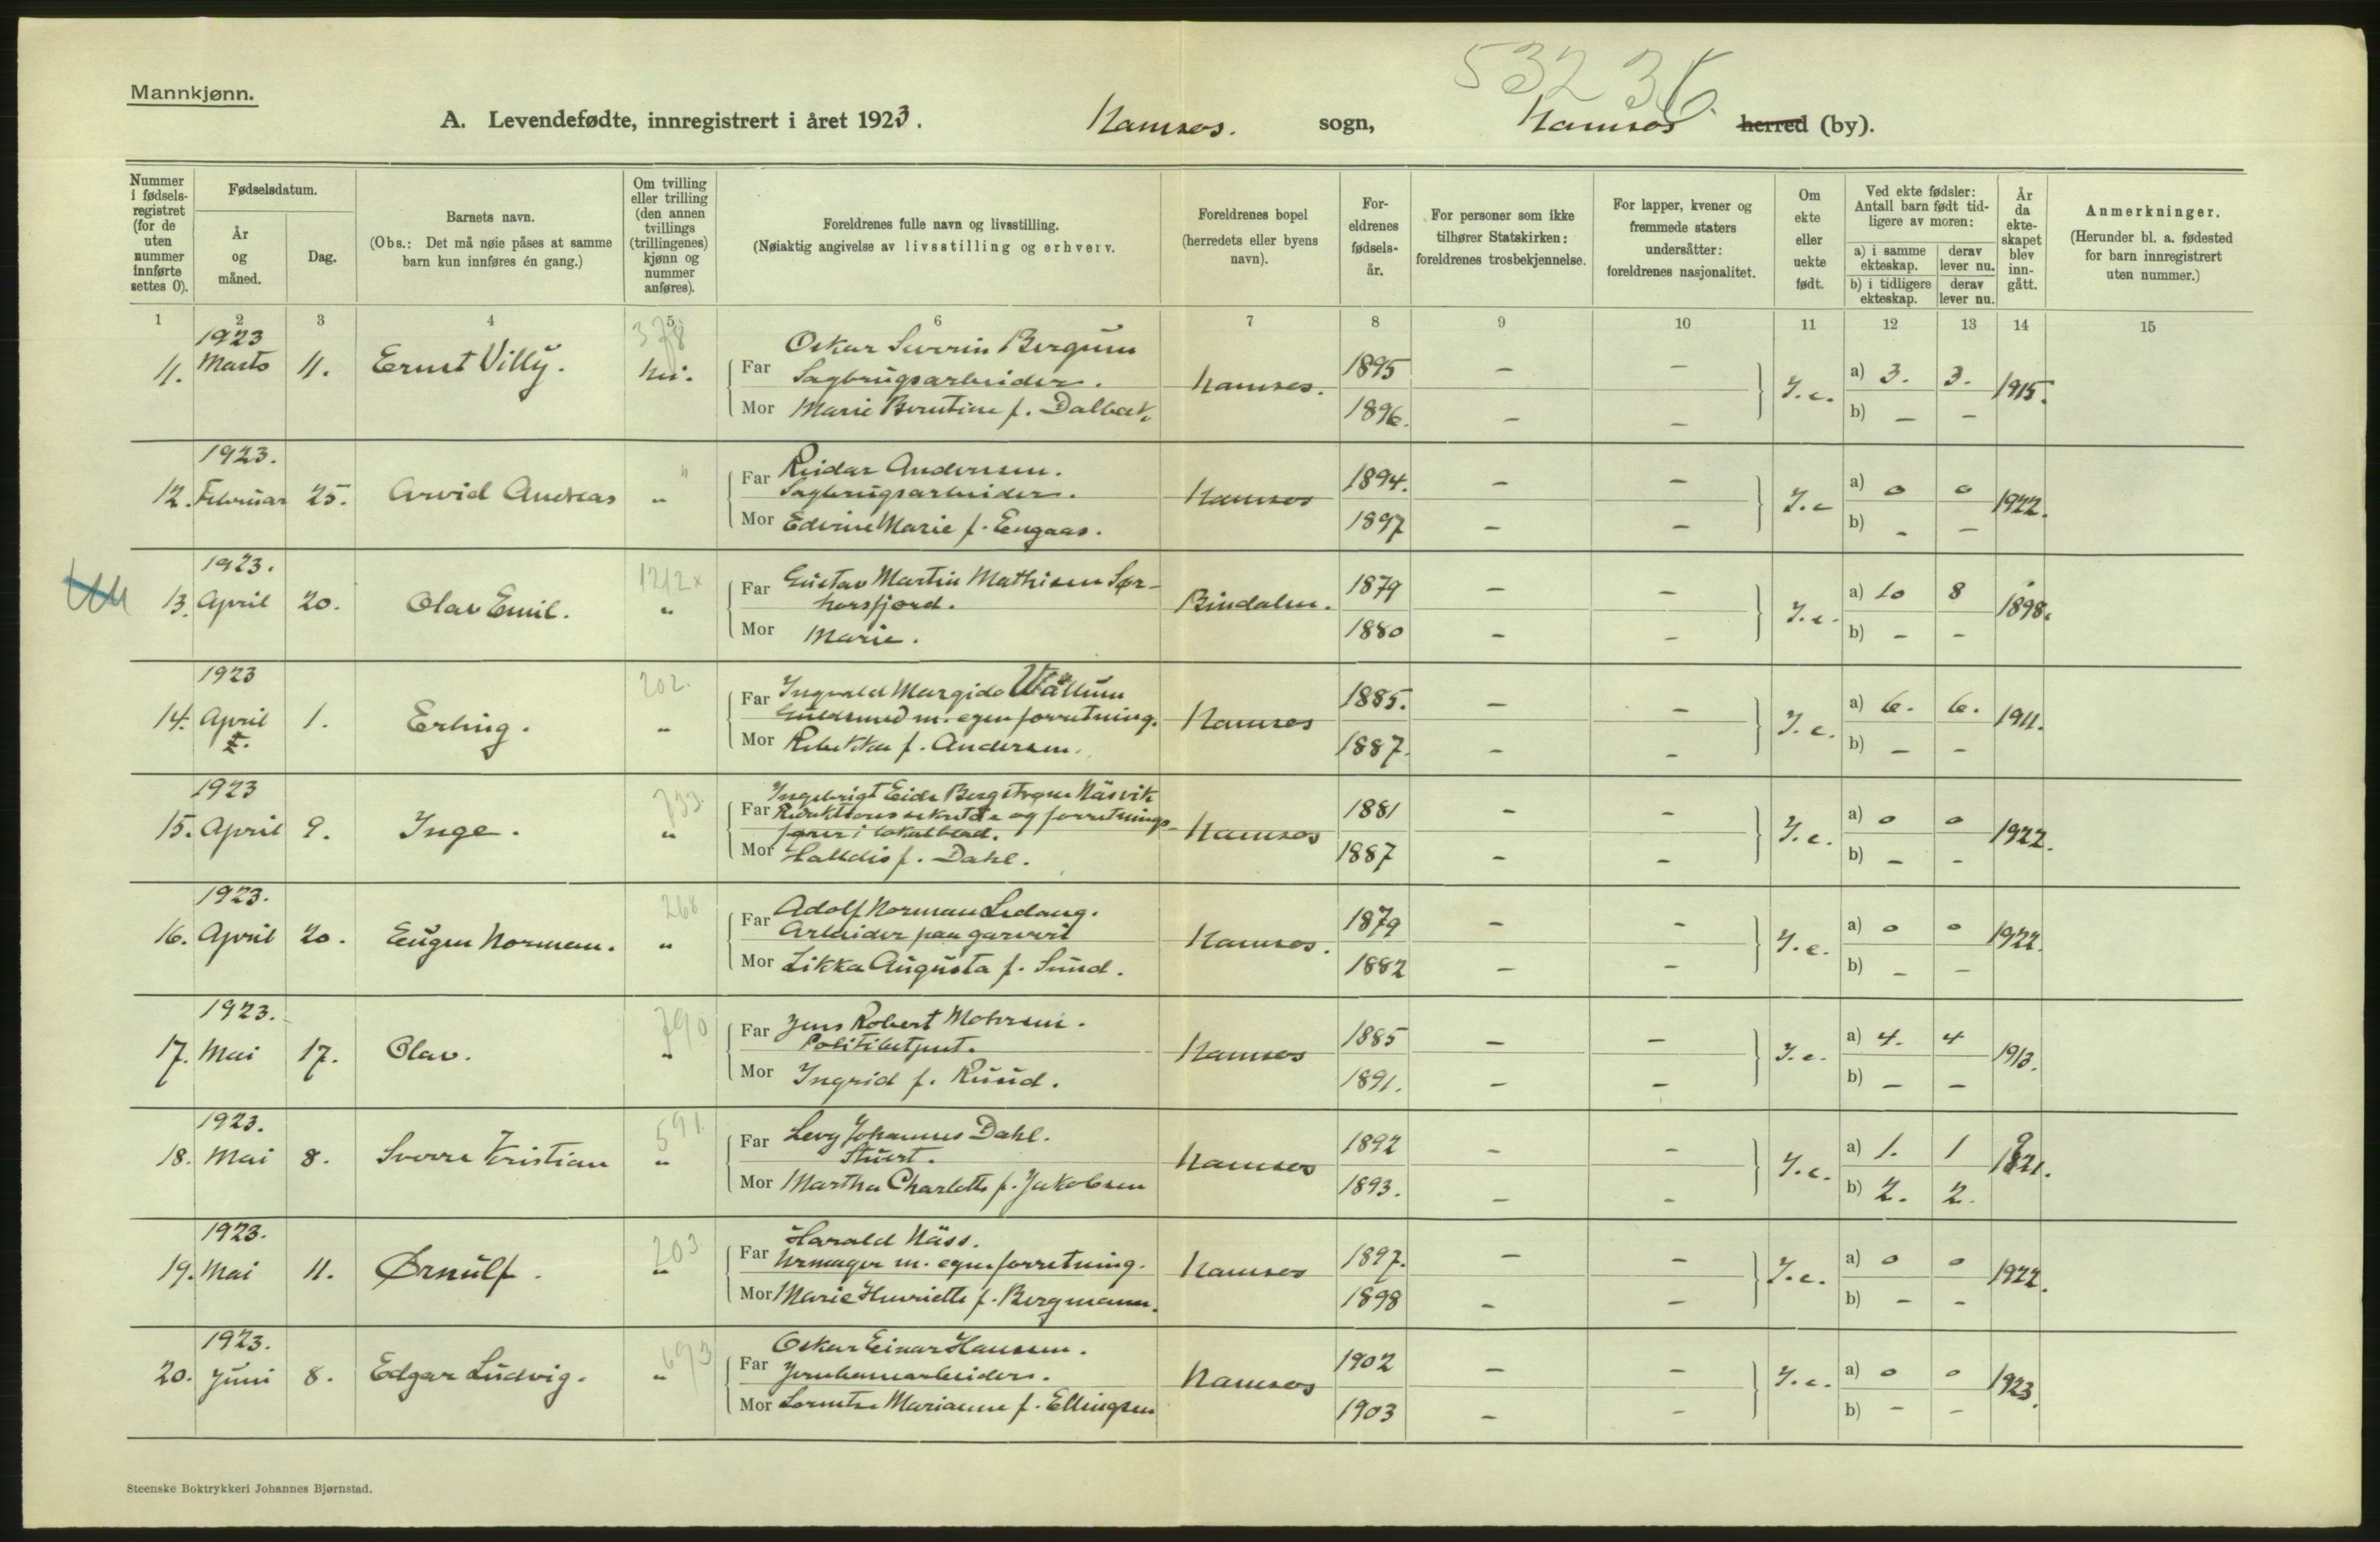 53236
Mannkjønn.
A. Levendefødte, innregistrert i året 1923. Namsos. sogn, Namsos herred (by).
Nummer i fødsels-registret (for de uten nummer innførte settes 0).
Fødselsdatum.
År og måned.
Dag.
Barnets navn.
(Obs.: Det må nøie påses at samme barn kun innføres én gang.)
Om tvilling eller trilling (den annen tvillings (trillingenes) kjønn og nummer anføres).
Foreldrenes fulle navn og livsstilling.
(Nøiaktig angivelse av livsstilling og erhverv.
Foreldrenes bopel (herredets eller byens navn).
For-eldrenes fødsels-år.
For personer som ikke tilhører Statskirken: foreldrenes trosbekjennelse.
For lapper, kvener og fremmede staters undersåtter: foreldrenes nasjonalitet.
Om ekte eller uekte født.
Ved ekte fødsler: Antall barn født tid-ligere av moren:
a) i samme ekteskap. derav lever nu.
b) i tidligere ekteskap. derav lever nu.
År da ekte-skapet blev inn-gått.
Anmerkninger.
(Herunder bl. a. fødested for barn innregistrert uten nummer.)
1 2 3 4 5 6 7 8 9 10 11 12 13 14 15
1923 378 Oskar Severin Bergum
11. Marts 11. Ernst Villy. nei. Far Sagbrugsarbeider. Namsos. 1895 – – I.e. a) 3. 3. 1915.
Mor Marie Berntine f. Dalbak. 1896. – – b) – –
1923. Reidar Andersen.
12. Februar 25. Arvid Andreas " Far Sagbrugsarbeider. Namsos 1894. – – I.e a) 0 0 1922.
Mor Edvine Marie f. Engaas. 1897 – – b) – –
1923. 1212x Far Gustav Martin Mathisen Sør-
13. April 20. Olav Emil. " horsfjord. Bindalen. 1879 – – I.e. a) 10 8 1898.
Mor Marie. 1880 – – b) – –
1923 202. Far Ingvald Margido Wallum
14. April 1. Erling. " Guldsmed m. egen forretning. Namsos 1885. – – I.e. a) 6. 6. 1911.
Mor Rebekka f. Andersen. 1887. – – b) – –
1923 733. Ingebrigt Eide Bergstrøm Näsvik
15. April 9. Inge. " Far Redaktionssekretær og forretnings-
fører i lokalblad. Namsos 1881 – – I.e. a) 0 0 1922.
Mor Halldis f. Dahl. 1887 – – b) – –
1923. 268 Far Adolf Norman Ledang.
16. April 20. Eugen Norman. " Arbeider paa garveri Namsos. 1879 – – I.e. a) 0 0 1922.
Mor Likka Augusta f. Sund. 1882 – – b) – –
1923. 790 Far Jens Robert Mohrsen.
17. Mai 17. Olav. " Politibetjent. Namsos 1885 – – I.e. a) 4. 4 1913.
Mor Ingrid f. Ruud. 1891. – – b) – –
1923. 591. Far Levy Johannes Dahl.
18. Mai 8. Sverre Kristian " Stuert. Namsos 1892 – – I.e. a) 1. 1 1921.
Mor Martha Charlotte f. Jakobsen 1893. – – b) 2. 2.
1923. 203 Harald Näss.
19. Mai 11. Ørnulf. " Far Urmager m. egen forretning. Namsos 1897. – – I.e. a) 0 0 1922.
Mor Marie Henriette f. Bergmann. 1898 – – b) – –
1923. 693 Oskar Einar Hansen.
20. Juni 8. Edgar Ludvig. " Far Jernbanearbeider. Namsos 1902 – – I.e. a) 0 0 1923.
Mor Marianne f. Ellingsen 1903 – – b) – –
Steenske Boktrykkeri Johannes Bjørnstad.